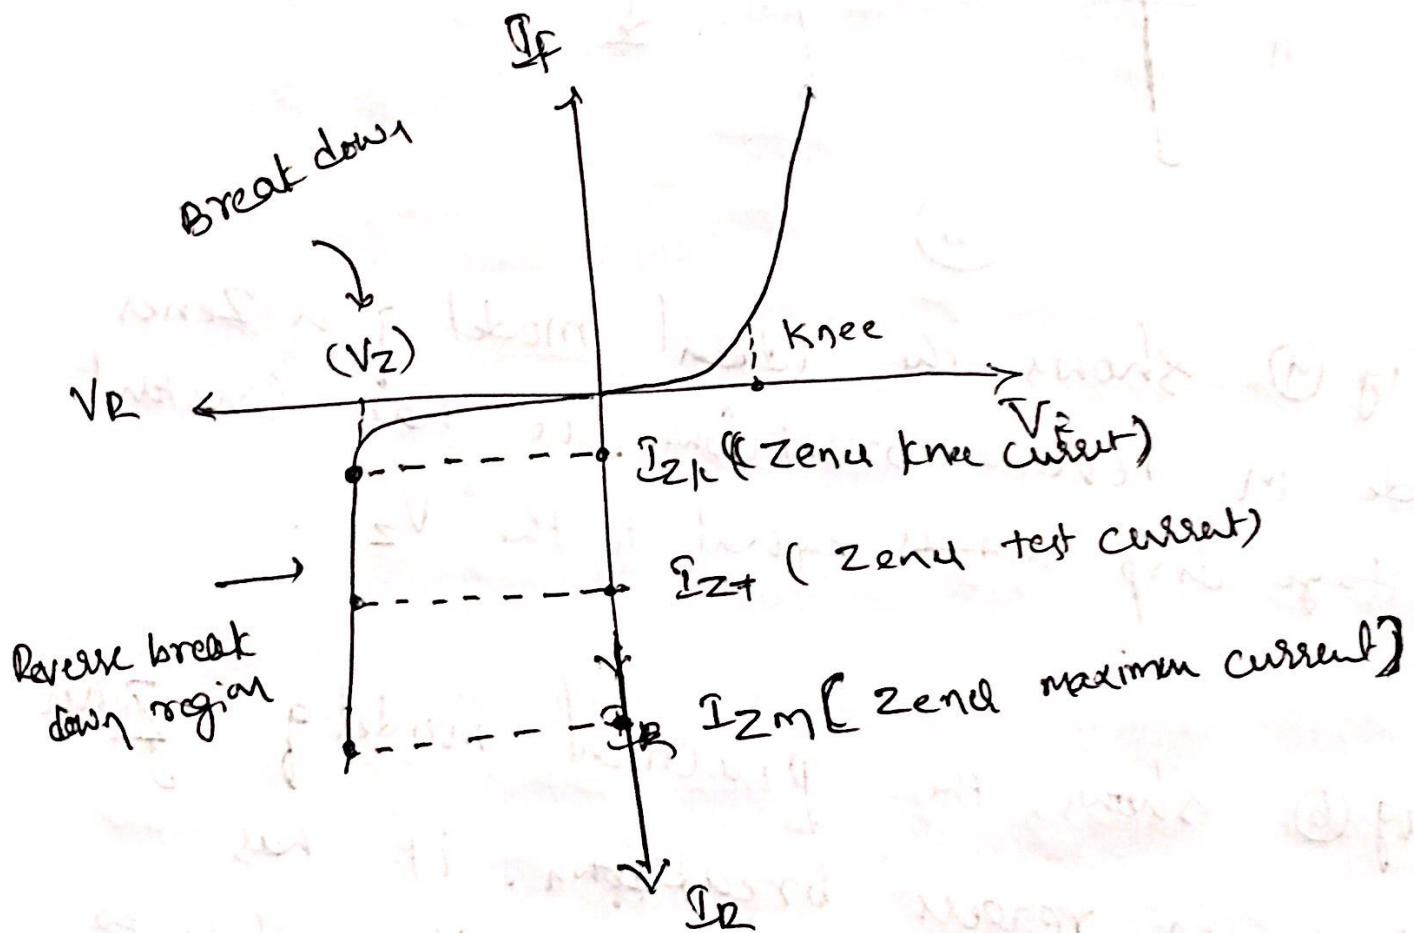 I_F
Break down
(VZ)
Knee
VR
V_F
I_ZK (Zener knee current)
I_ZT (Zener test current)
Reverse break
down region
I_R
I_ZM [Zener maximum current]
I_R